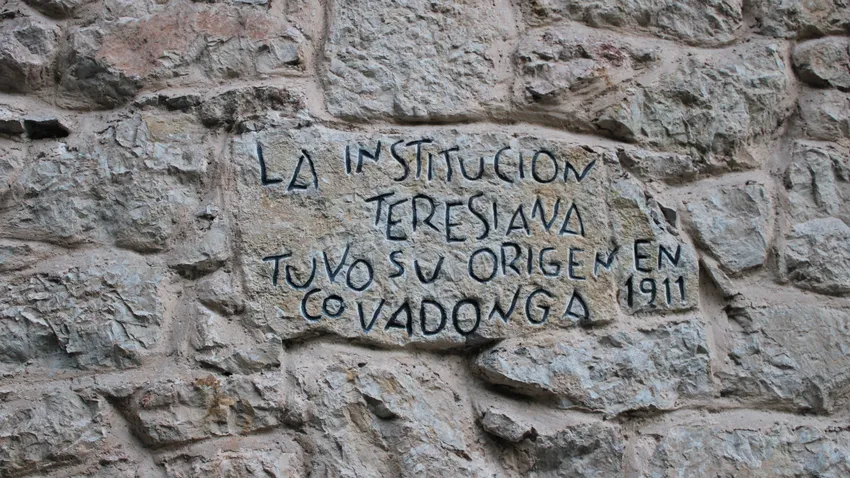 LA INSTITUCION
TERESIANA
TUVO SU ORIGEN EN
COVADONGA 1911